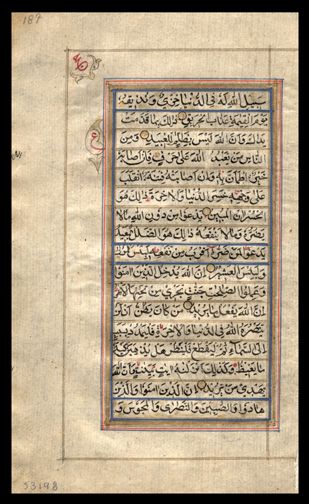 187
سبيل الله له فى الدنيا خزي ونذيقه
يوم القيمة عذاب الحريق ذلك بما قدمت
يداك وان الله ليس بظلام للعبيد ومن
الناس من يعبد الله على حرف فان اصابه
خير اطمان به وان اصابته فتنة انقلب
على وجهه خسر الدنيا والاخرة ذلك هو
الخسران المبين يدعوا من دون الله ما لا
يضره وما لا ينفعه ذلك هو الضلل البعيد
يدعوا لمن ضره اقرب من نفعه لبئس المولى
ولبئس العشير ان الله يدخل الذين امنوا
وعملوا الصلحت جنت تجري من تحتها الانهر
ان الله يفعل ما يريد من كان يظن ان لن
ينصره الله فى الدنيا والاخرة فليمدد بسبب
الى السماء ثم ليقطع فلينظر هل يذهبن كيده
ما يغيظ وكذلك انزلنه ايت بينت وان الله
يهدي من يريد ان الذين امنوا والذين
هادوا والصبئين والنصرى والمجوس و
53198